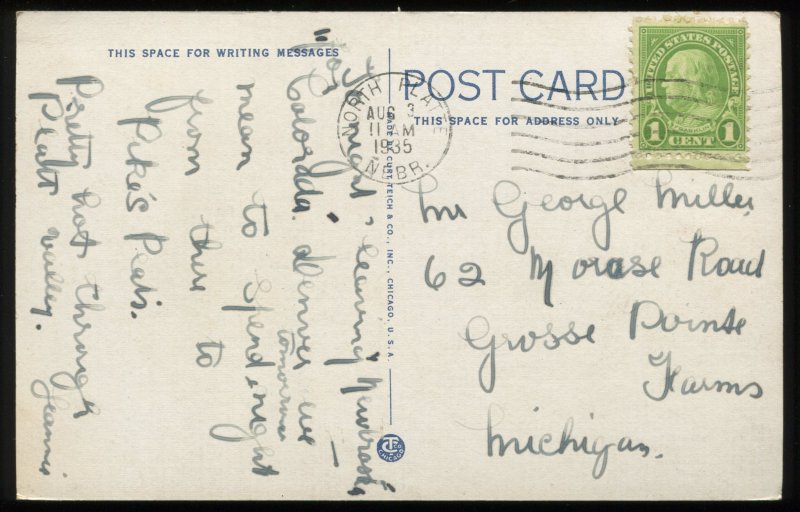 THIS SPACE FOR WRITING MESSAGES
POST CARD
THIS SPACE FOR ADDRESS ONLY
NORTH PLATTE
AUG 3
11 AM
1935
NEBR.
UNITED STATES POSTAGE
FRANKLIN
1 CENT 1
MADE BY CURT TEICH & CO., INC., CHICAGO, U.S.A.
Mr George Miller
62 Morase Road
Grosse Pointe
Farms
Michigan.
to night, leaving Newbraska
Colorada. Denver we
tomorrow
mean to spend night
from there to
Pike's Peak.
Pretty hot through
Platt valley.
Jeannie
CT
CHICAGO